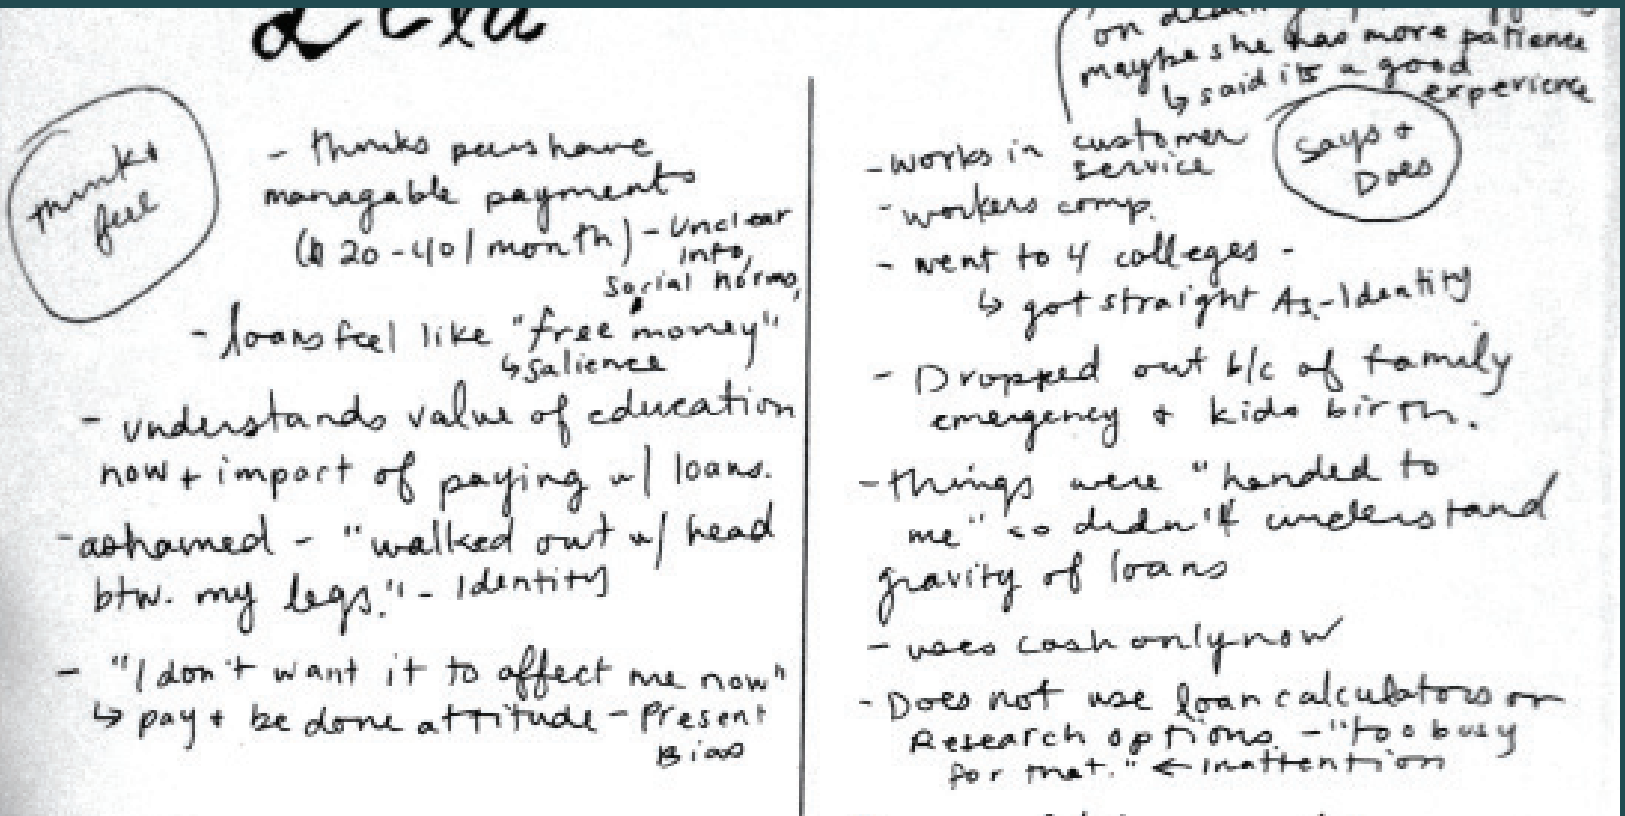 on
maybe she has more patience
↳ said its a good
experience
thinks +
feel
- thinks peers have
managable payments
($20-40/month) - Unclear
info,
social norms,
- loans feel like "free money"
↳ salience
- understands value of education
now + impact of paying w/ loans.
- ashamed - "walked out w/ head
btw. my legs." - Identity
- "I don't want it to affect me now"
↳ pay + be done attitude - Present
Bias
Says +
Does
- works in customer
service
- workers comp.
- went to 4 colleges -
↳ got straight As - Identity
- Dropped out b/c of family
emergency + kids birth.
- things were "handed to
me" so didn't understand
gravity of loans
- uses cash only now
- Does not use loan calculators or
Research options - "too busy
for that." ← inattention